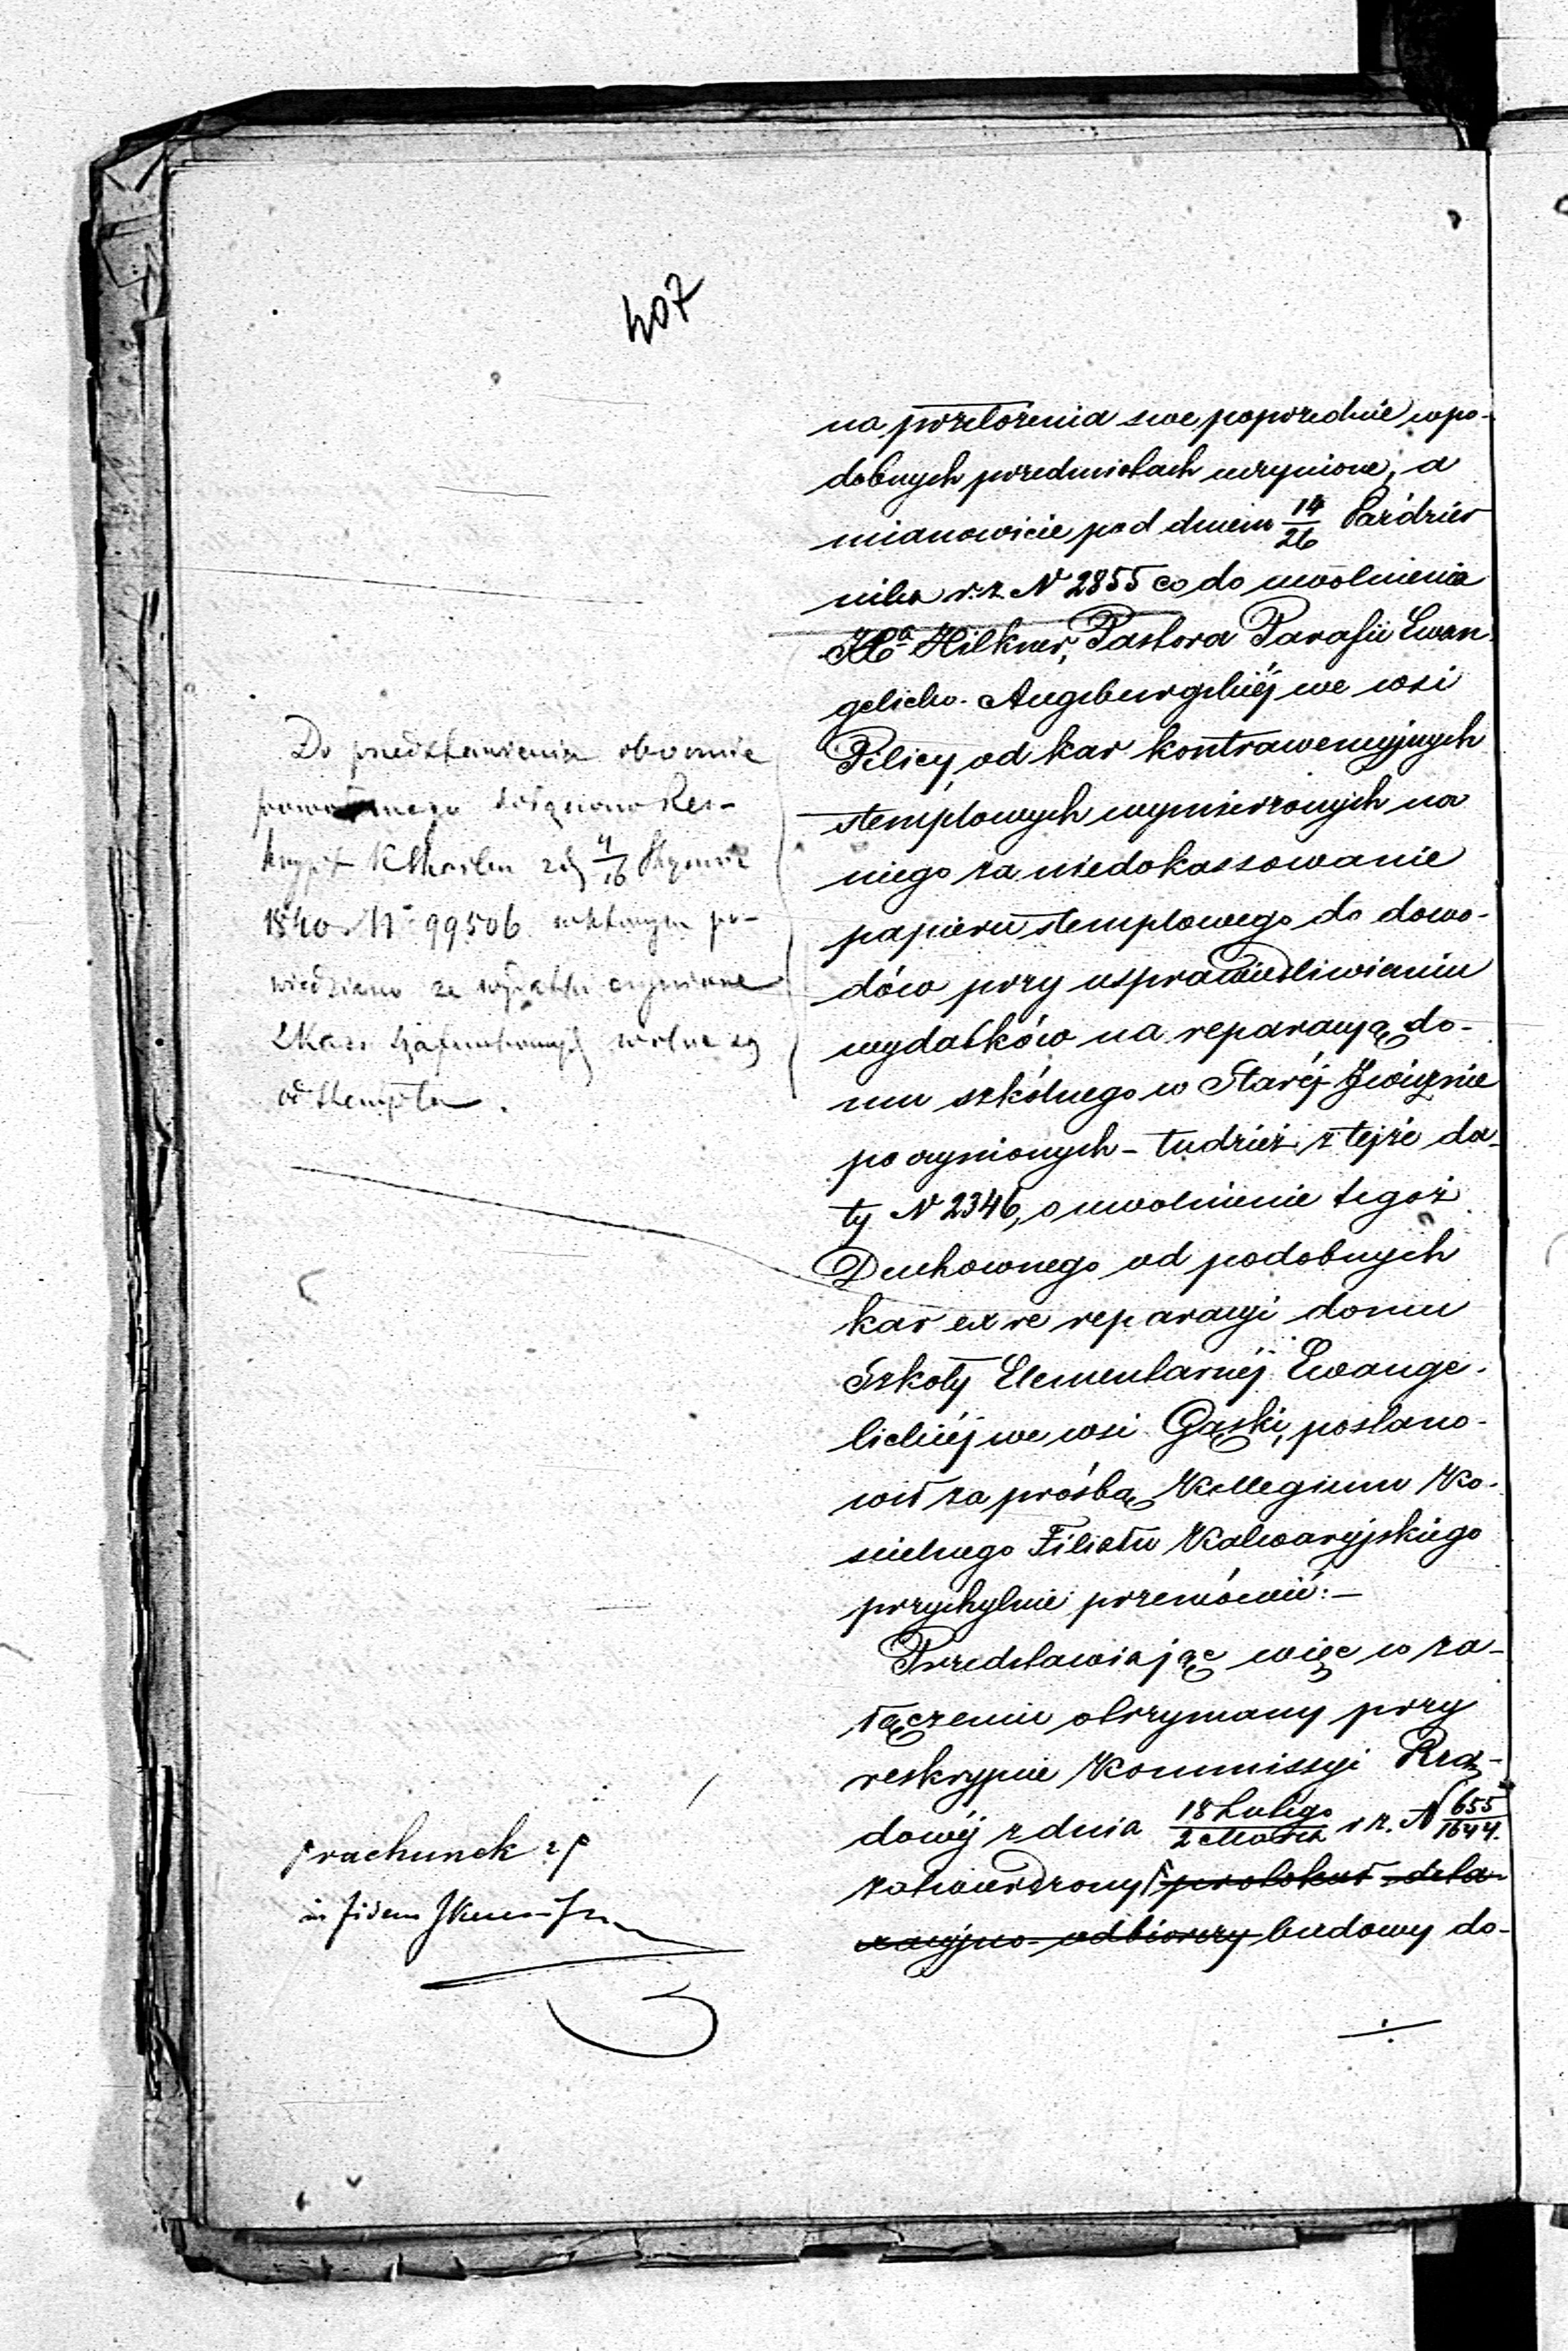 407
na przełożenia swe poprzednie w po-
dobnych przedmiotach uczynione, a
mianowicie pod dniem 14/26 Paździer
nika r.z. N 2855 co do uwolnienia
Xa Hilkner, Pastora Parafii Ewan
gelicko-Augsburgskiéj we wsi
Pilicy, od kar kontrawencyjnych
stemplowych wymierzonych na
niego za niedokassowanie
papieru stemplowego do dowo-
dów przy usprawiedliwieniu
wydatków na reparacyą do-
mu szkólnego w Staréj
poczynionych - tudzież z tejże da-
ty N 2346, o uwolnienie tegoż
Duchownego od podobnych
kar ex re reparacyi domu
Szkoły Elementarnéj Ewange-
lickiéj we wsi Gąski, postano-
wił za prośbą Kollegium Ko-
scielnego Filiału Kalwaryjskiego
przychylnie przemówić: -
Przedstawiając więc w za-
łączeniu otrzymany przy
reskrypcie Kommissyi Rzą-
dowéj z dnia 18 Lutego/2 Marca r.z. N 655/1644.
zatwierdzony protokuł dekla-
racyjno-odbiorczy budowy do-
Do przedstawienia obecnie
dołączono Res-
krypt 4/16 Stycznia
1840 N 99506 w którym po-
wiedziano że wydatki czynione
z Kass wolne są
od stempla.
rachunek
in fidem